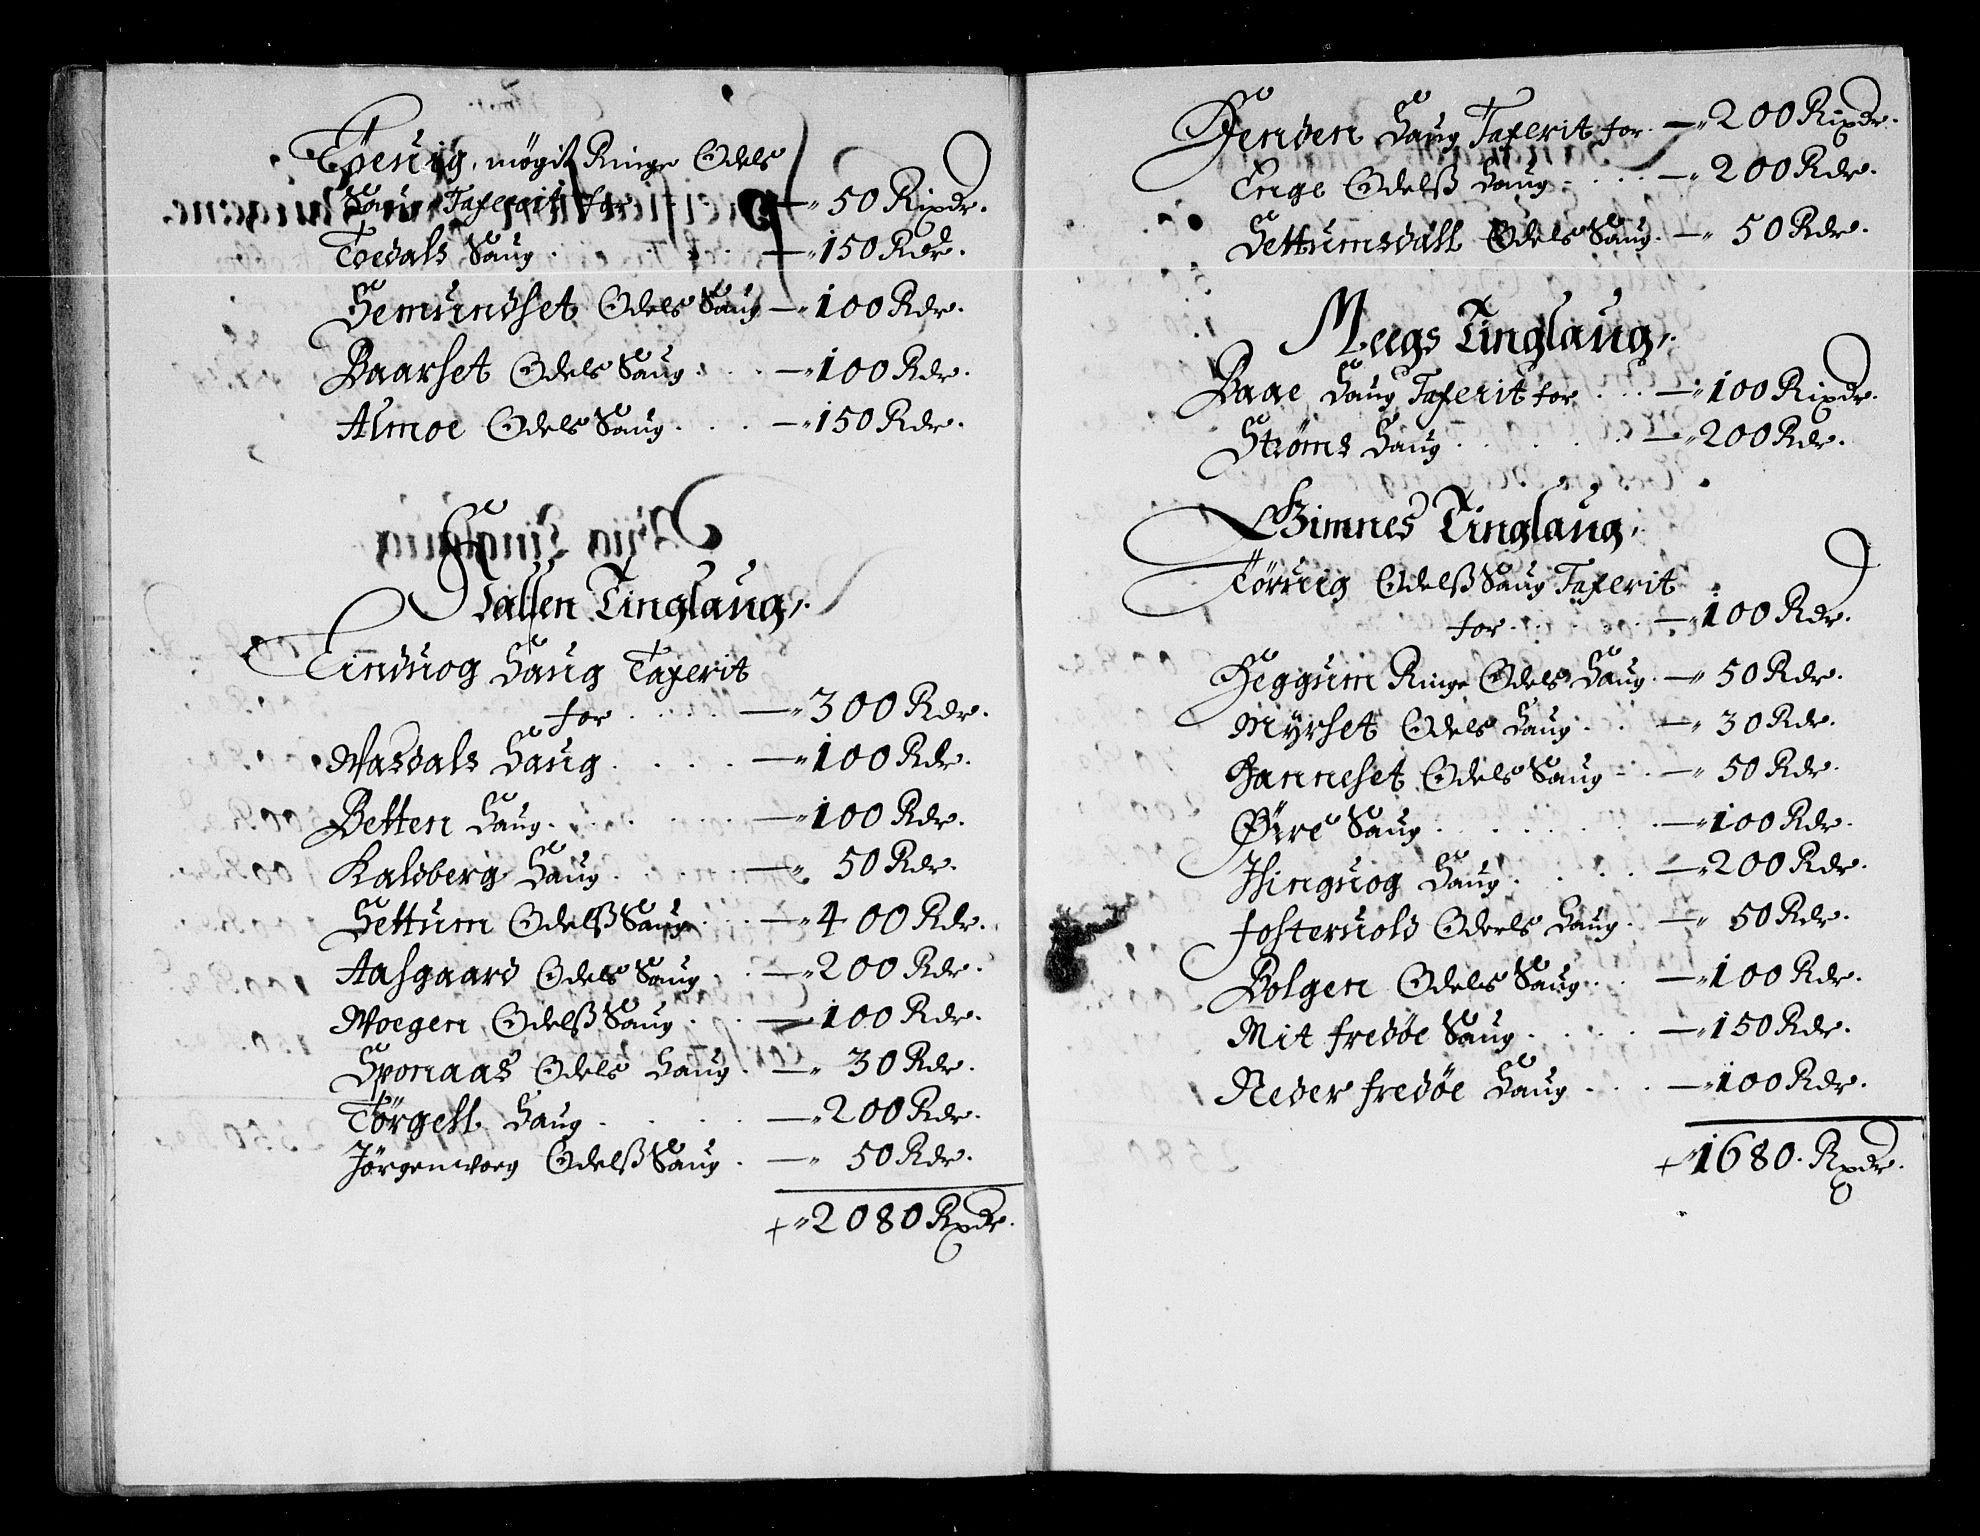 Ÿesuig, mögit Ringe Odels
Saug Taxerit for — 50 Rixdr.
Toedals Saug . . . — 150 Rdr.
Semundset Odels Saug — 100 Rdr.
Baarset Odels Saug . . . — 100 Rdr.
Almoe Odels Saug . . . — 150 Rdr.
Stallen Tinglaug,.
Einduog Saug Taxerit
for . . . . — 300 Rdr.
Wasdals Saug . . . . — 100 Rdr.
Betten Saug . . . . — 100 Rdr.
Kaldberg Saug . . . . — 50 Rdr.
Settum Odelß Saug . . — 400 Rdr.
Aasgaard Odels Saug . . — 200 Rdr.
Woegen Odelß Saug . . — 100 Rdr.
Odels Saug . — 30 Rdr.
Törgell Saug . . . . — 200 Rdr.
Jörgenwoeg Odelß Saug . — 50 Rdr.
2080 Rxdr.
Henden Saug Taxerit for . — 200 Rixdr.
Enge Odelß Saug . . . — 200 Rdr.
Settumsdall Odels Saug . — 50 Rdr.
Meegs Tinglaug,.
Baae Saug Taxerit for . . . — 100 Rixdr.
Strøms Saug . . . . — 200 Rdr.
Gimnes Tinglaug,.
Törruig Odelß Saug Taxerit
for . . . . — 100 Rdr.
Heggum Ringe Odels Saug . — 50 Rdr.
Myrset Odels Saug . . — 30 Rdr.
Janneset Odels Saug . . — 50 Rdr.
Øire Saug . . . . — 100 Rdr.
Isinguog Saug . . . . — 200 Rdr.
Fosteruold Odels Saug . — 50 Rdr.
Bolgen Odels Saug . . — 100 Rdr.
Mit fredøe Saug . . . . — 150 Rdr.
Neder fredøe Saug . . . — 100 Rdr.
1680. Rxdr.